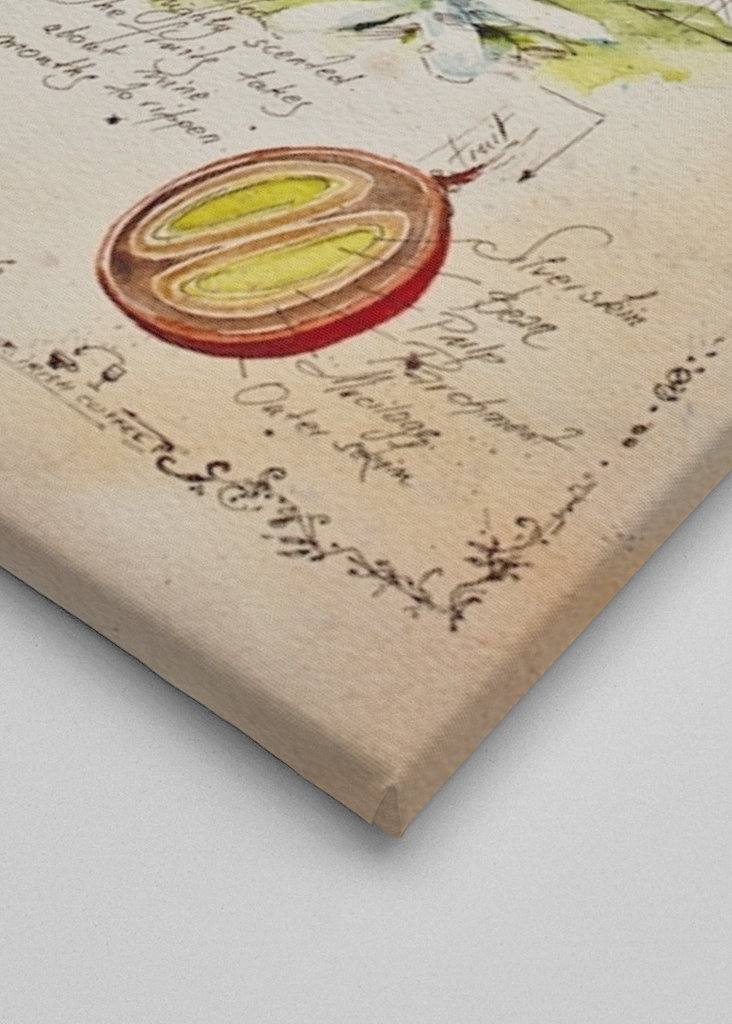 highly scented.
The fruits takes
about nine
months to rippen.
Fruit
Silverskin
Bean
Pulp
Parchment
Mucilage
Outer skin
IRISH COFFEE